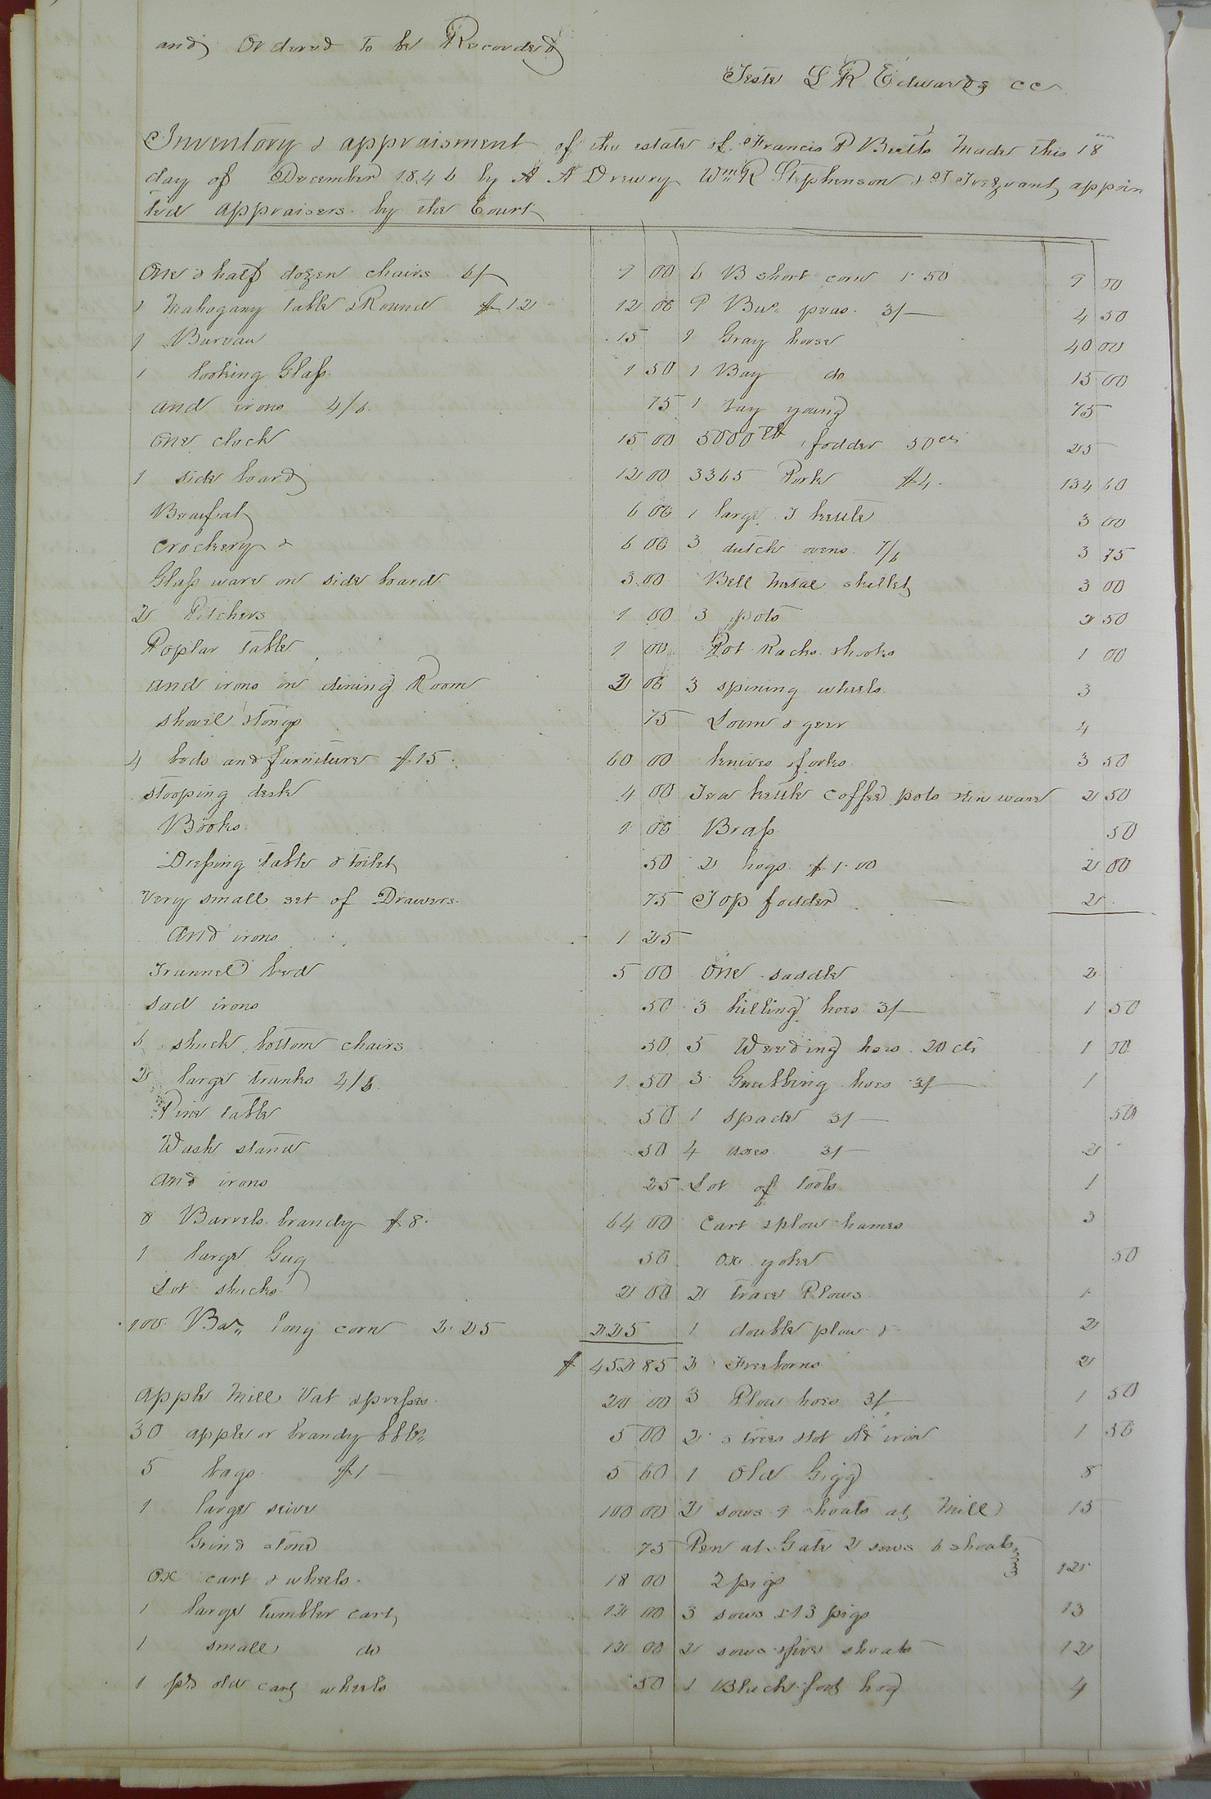 and Ordered to be Recorded
Teste L R Edwards cc
Inventory & appraisment of the estate of Francis P Butts made this 18
day of December 1846 by A A Drewry Wm R Stephenson & T Trezvant appoin
ted appraisers by the Court
One & half dozen chairs 6/ 9 00
1 Mahogany table & Round $12 12 00
1 Bureau 15
1 looking Glass 1 50
and irons 4/6 75
One clock 15 00
1 side board 12 00
Beaufat 6 00
Crockery & 6 00
Glass ware on side board 3.00
2 Pitchers 1 00
Poplar table 1 00
and irons in dining Room 2 00
shovel & tongs 75
4 beds and furniture $15 60 00
stooping desk 4 00
Books 1 00
Dressing table & toilet 50
Very small set of Drawers 75
And irons 1 25
Trunnel bed 5 00
sad irons 50
shuck bottom chairs 50
2 large trunks 4/6 1.50
Pine table 50
Wash stand 50
and irons 25
8 Barrels brandy $8 64 00
1 large Gug 50
Lot shucks 2 00
100 Bar long corn 2.25 225
$ 452 85
apple Mill Vat & presses 20 00
30 apple or brandy bbls 5 00
5 bags $1 5 00
1 large seive 100 00
Grind stone 75
Ox cart & wheels 18 00
1 large tumbler cart 12 00
1 small do 12 00
1 pr old cart wheels 50
6 B short corn 1.50 9 00
9 Bus peas 3/ 4 50
1 Gray horse 40 00
1 Bay do 15 00
1 bay young 75
5000 lb fodder 50cts 25
3365 Pork $4 134 60
1 large kettle 3 00
3 dutch ovens 7/6 3 75
Bell metal skillet 3 00
3 pots 2 50
Pot Racks & hooks 1 00
3 spining wheels 3
Loom & gear 4
knives & forks 3 50
Tea kettle coffee pots & tin ware 2 50
Brass 50
2 hogs $1.00 2 00
Top fodder 2
One saddle 2
3 hilling hoes 3/ 1 50
5 Weeding hoes 20 cts 1 00
3 Grubbing hoes 1
1 spade 3/ 50
4 axes 3/ 2
Lot of tools 1
Cart & plow hames 3
Ox yoke 50
2 trace Plows 1
1 double plow & 2
2 2
3 Plow hoes 3/ 1 50
2 trees & lot old iron 1 50
1 Old Gigg 8
2 sows 9 shoats at Mill 15
Pen at Gate 2 sows 6 shoats
2 pigs 12
3 sows & 13 pigs 13
2 sows & five shoats 12
1 Black foot hog 4